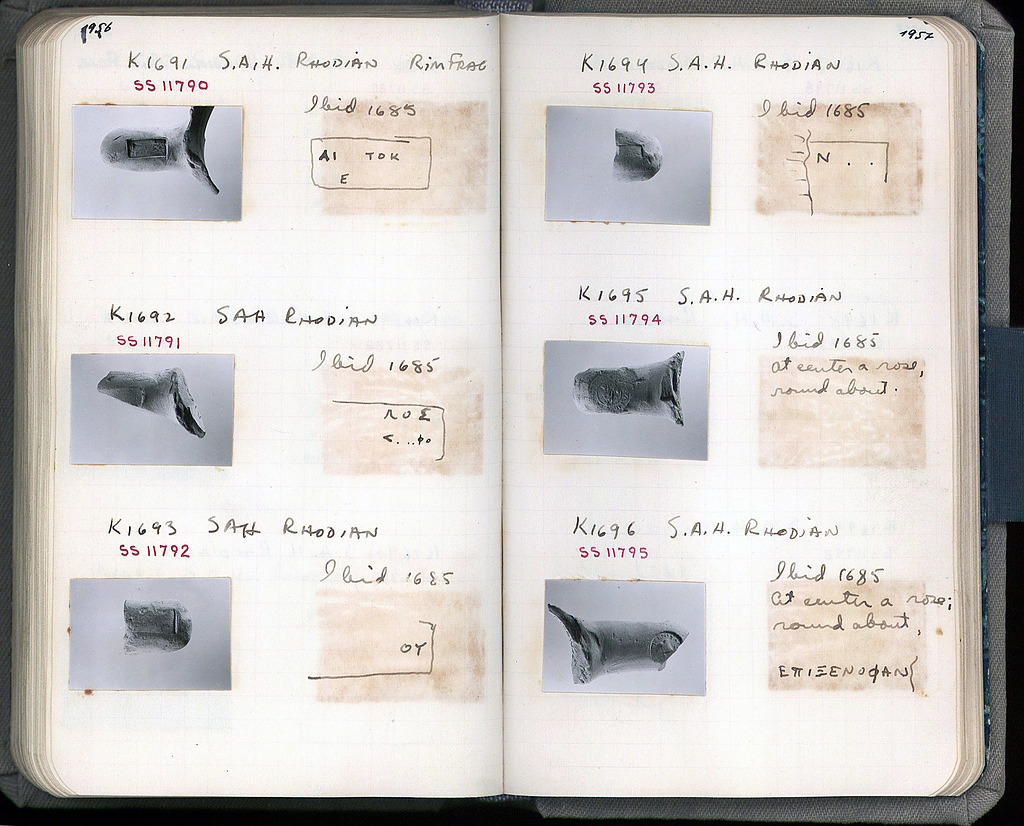 1956
K1691 S.A.H. RHODIAN RIMFRAG
SS 11790
Ibid 1685
AI TOK
E
K1692 SAH RHODIAN
SS 11791
Ibid 1685
ΛΟΣ
<...φο
K1693 SAH RHODIAN
SS 11792
Ibid 1685
ΟΥ
1957
K1694 S.A.H. RHODIAN
SS 11793
Ibid 1685
N . .
K1695 S.A.H. RHODIAN
SS 11794
Ibid 1685
at center a rose,
round about.
K1696 S.A.H. RHODIAN
SS 11795
Ibid 1685
at center a rose;
round about,
ΕΠΙΞΕΝΟΦΑΝ{